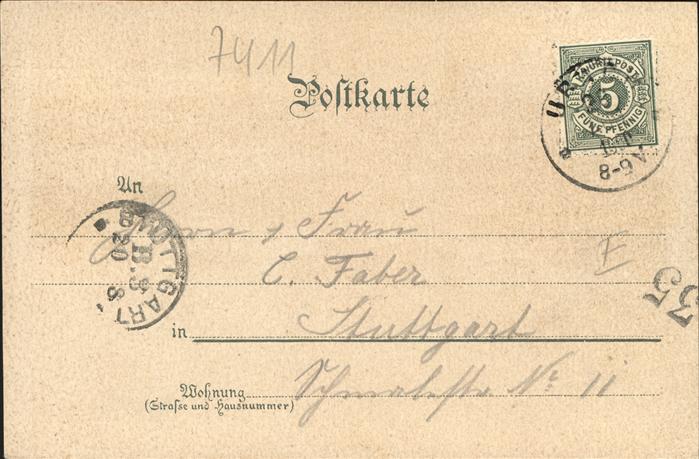 7411
Postkarte
K. WÜRTT. POST
5
FÜNF PFENNIG
8-9
An
Herrn & Frau
C. Faber
F
in Stuttgart
Wohnung No 11
(Strasse und Hausnummer)
STUTTGART
B.3
20
8
35